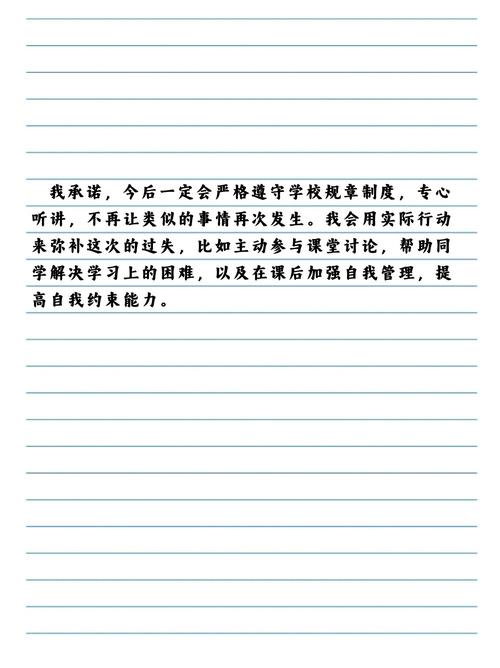 我承诺，今后一定会严格遵守学校规章制度，专心
听讲，不再让类似的事情再次发生。我会用实际行动
来弥补这次的过失，比如主动参与课堂讨论，帮助同
学解决学习上的困难，以及在课后加强自我管理，提
高自我约束能力。